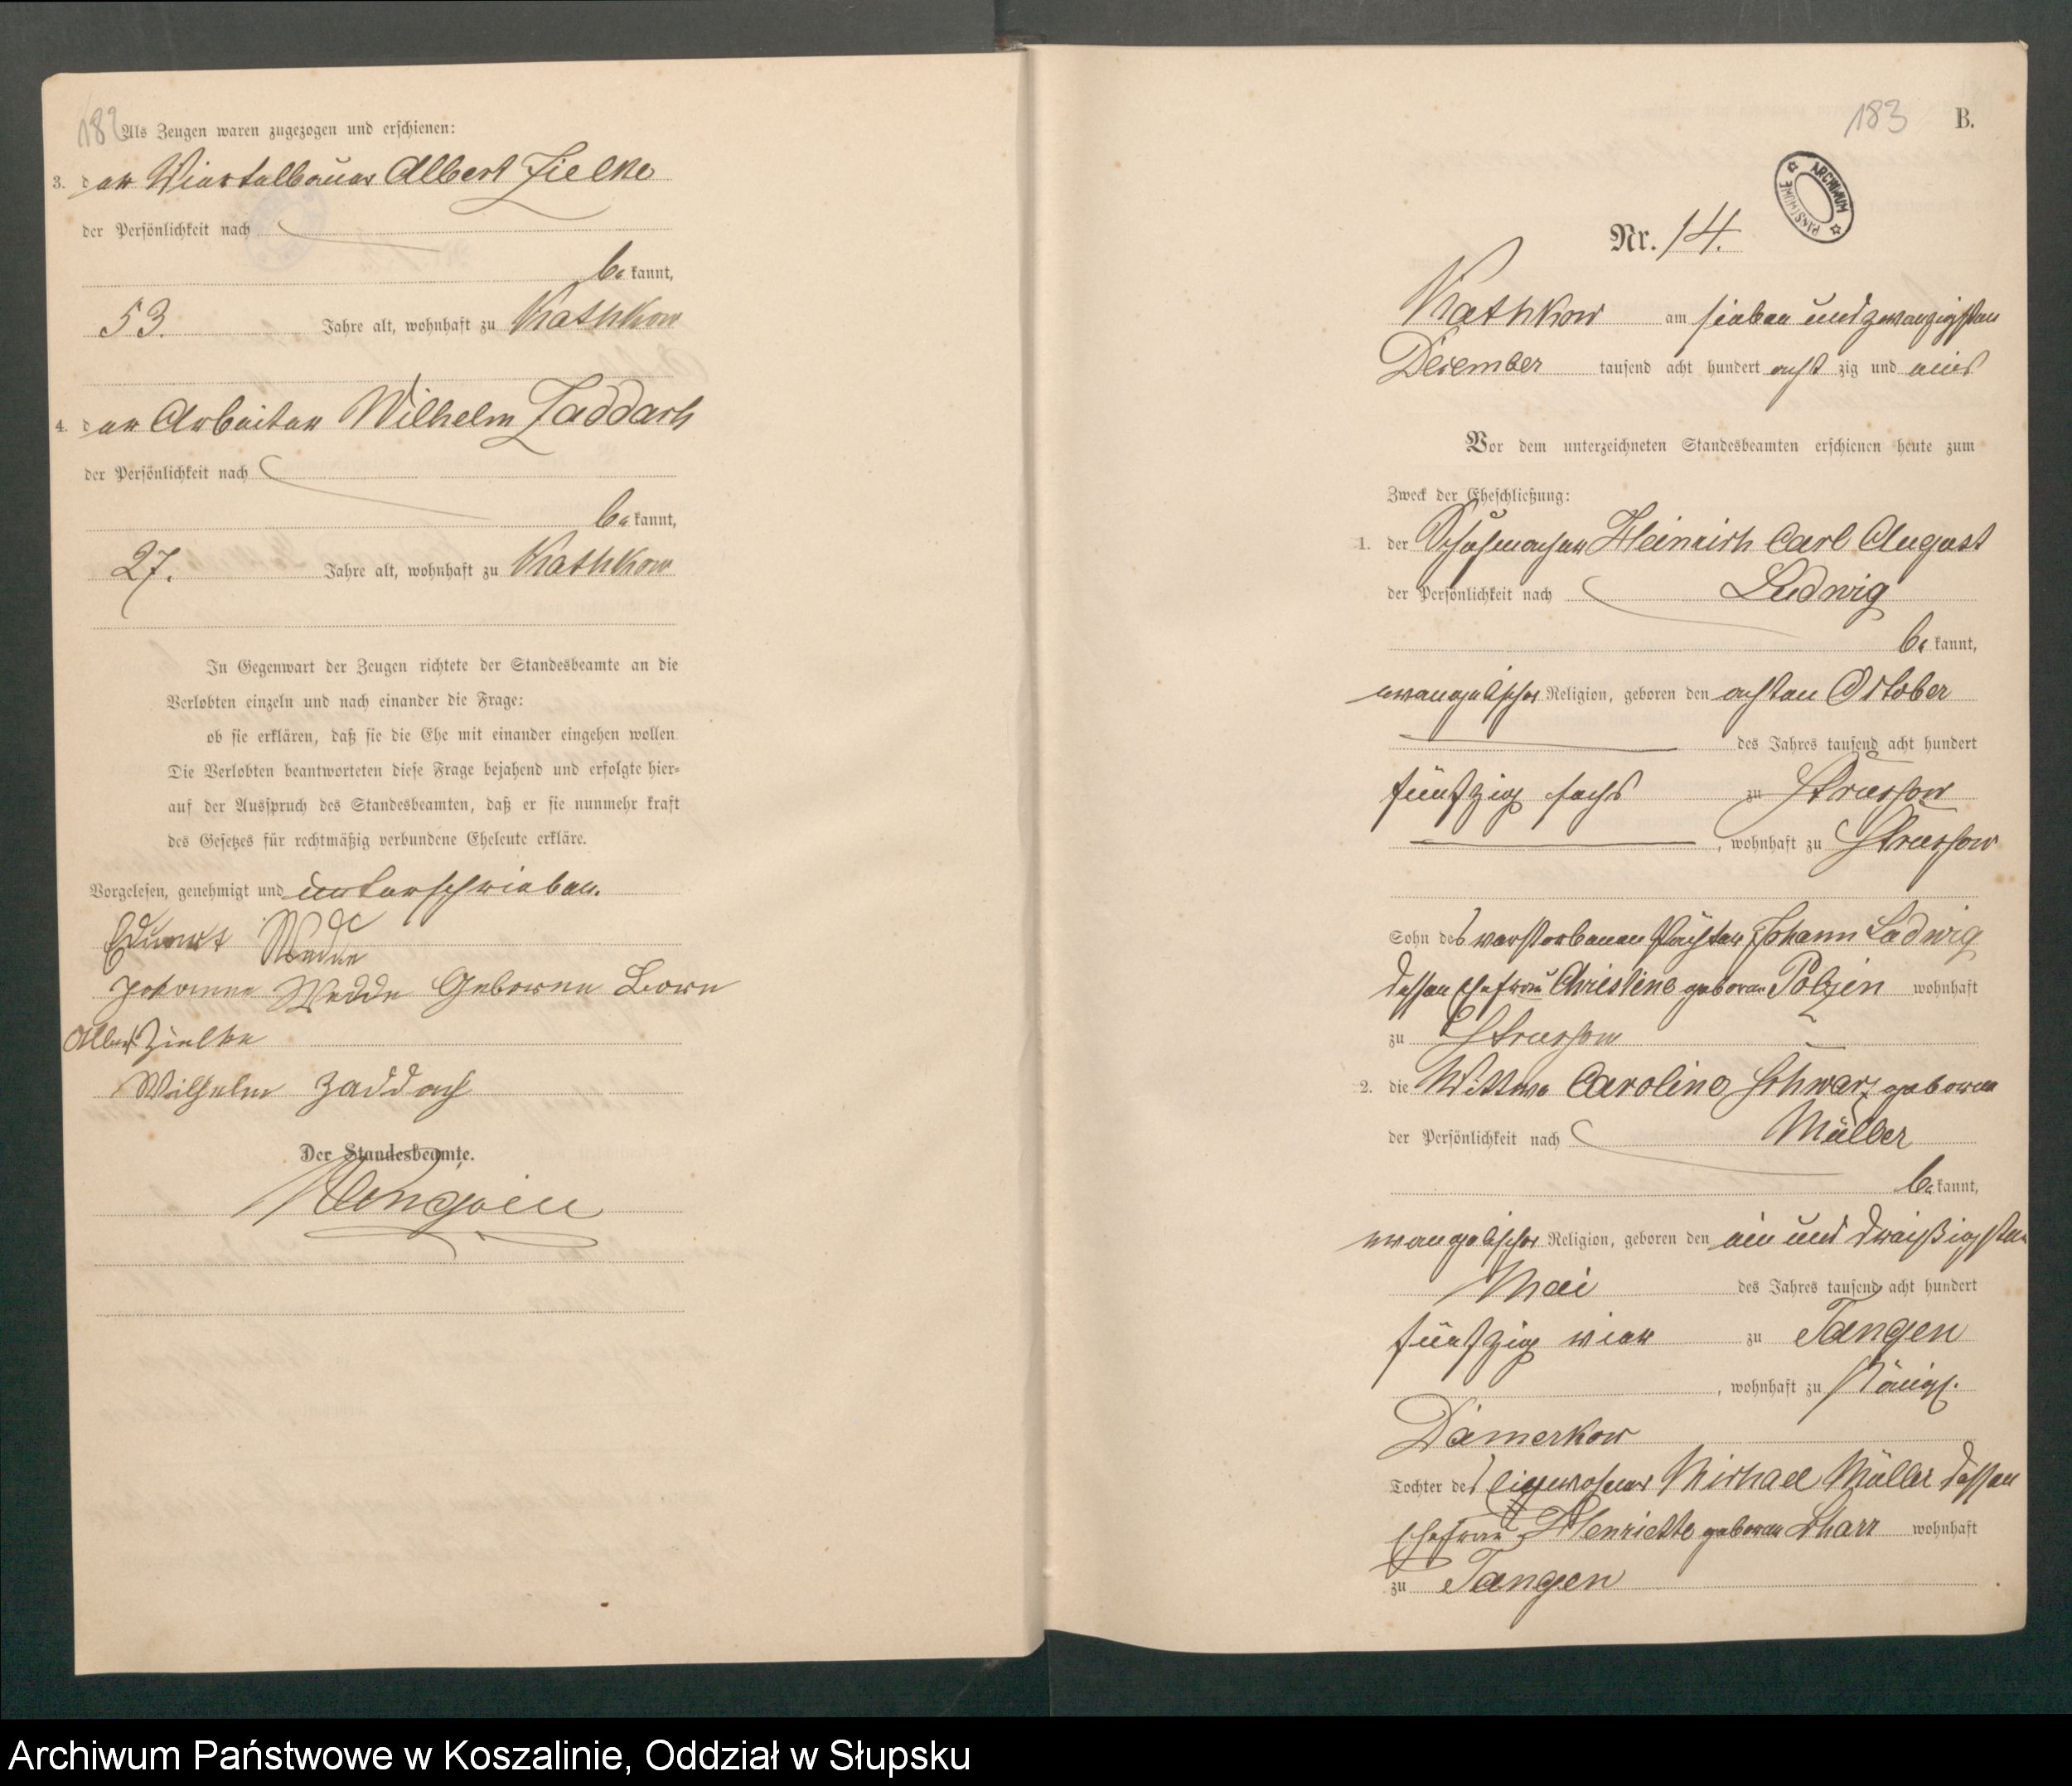 182
Als Zeugen waren zugezogen und erschienen:
3. der Viertelbauer Albert Zielke
der Persönlichkeit nach
be kannt,
53. Jahre alt, wohnhaft zu Kathkow
4. der Arbeiter Wilhelm Zaddach
der Persönlichkeit nach
be kannt,
27. Jahre alt, wohnhaft zu Kathkow
In Gegenwart der Zeugen richtete der Standesbeamte an die
Verlobten einzeln und nach einander die Frage:
ob sie erklären, daß sie die Ehe mit einander eingehen wollen
Die Verlobten beantworteten diese Frage bejahend und erfolgte hier=
auf der Ausspruch des Standesbeamten, daß er sie nunmehr kraft
des Gesetzes für rechtmäßig verbundene Eheleute erkläre.
Vorgelesen, genehmigt und unterschrieben.
Wedde
Johanne Wedde Geborene Born
Albert Zielke
Wilhelm Zaddach
Der Standesbeamte.
183 B.
ARCHIWUM PAŃSTWOWE
Nr. 14.
Kathkow am sieben und zwanzigsten
December tausend acht hundert acht zig und eins
Vor dem unterzeichneten Standesbeamten erschienen heute zum
Zweck der Eheschließung:
1. der Schuhmacher Heinrich Carl August
der Persönlichkeit nach Ludwig
be kannt,
evangelischer Religion, geboren den achten October
des Jahres tausend acht hundert
fünfzig sechs zu Strussow
, wohnhaft zu Strussow
Sohn des verstorbenen Johann Ludwig
dessen Ehefrau Christine geboren Polzin wohnhaft
zu Strussow
2. die Wittwe Caroline Schwarz geborene
der Persönlichkeit nach Müller
be kannt,
evangelischer Religion, geboren den ein und dreißigsten
Mai des Jahres tausend acht hundert
fünfzig vier zu Tangen
, wohnhaft zu Königl.
Damerkow
Tochter des Eigenthümers Michael Müller dessen
Ehefrau Henriette geboren wohnhaft
zu Tangen
Archiwum Państwowe w Koszalinie, Oddział w Słupsku